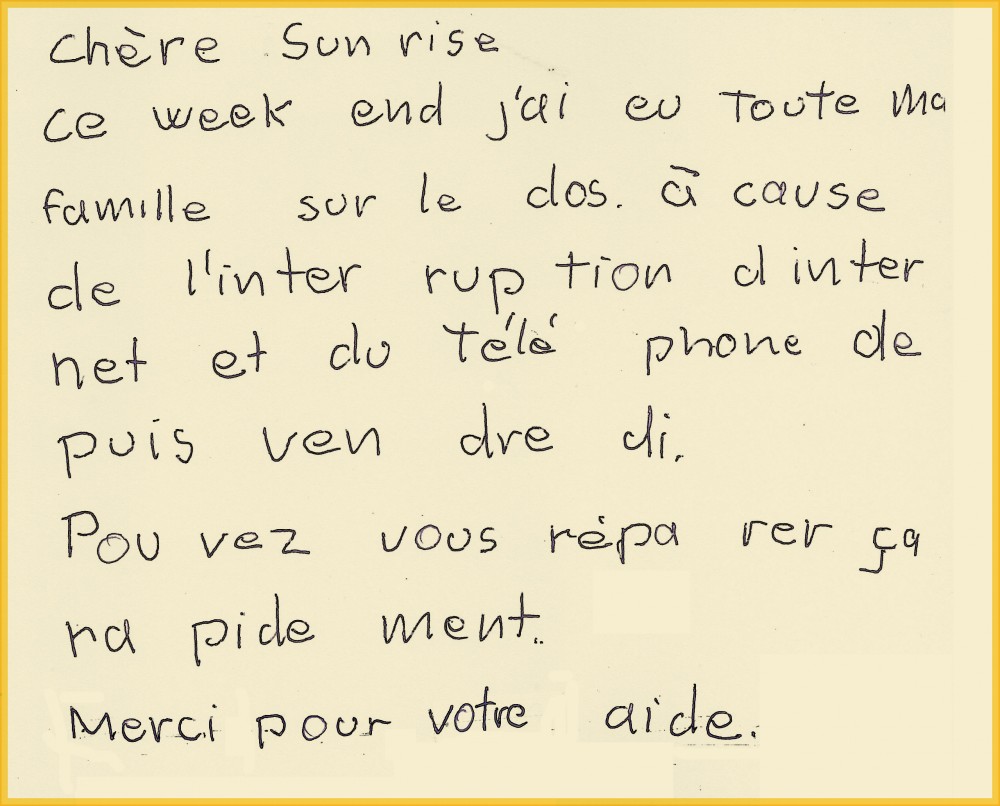 Chère Sun rise
ce week end j'ai eu toute ma
famille sur le dos. à cause
de l'inter rup tion d inter
net et du télé phone de
puis ven dre di.
Pou vez vous répa rer ça
ra pide ment.
Merci pour votre aide.